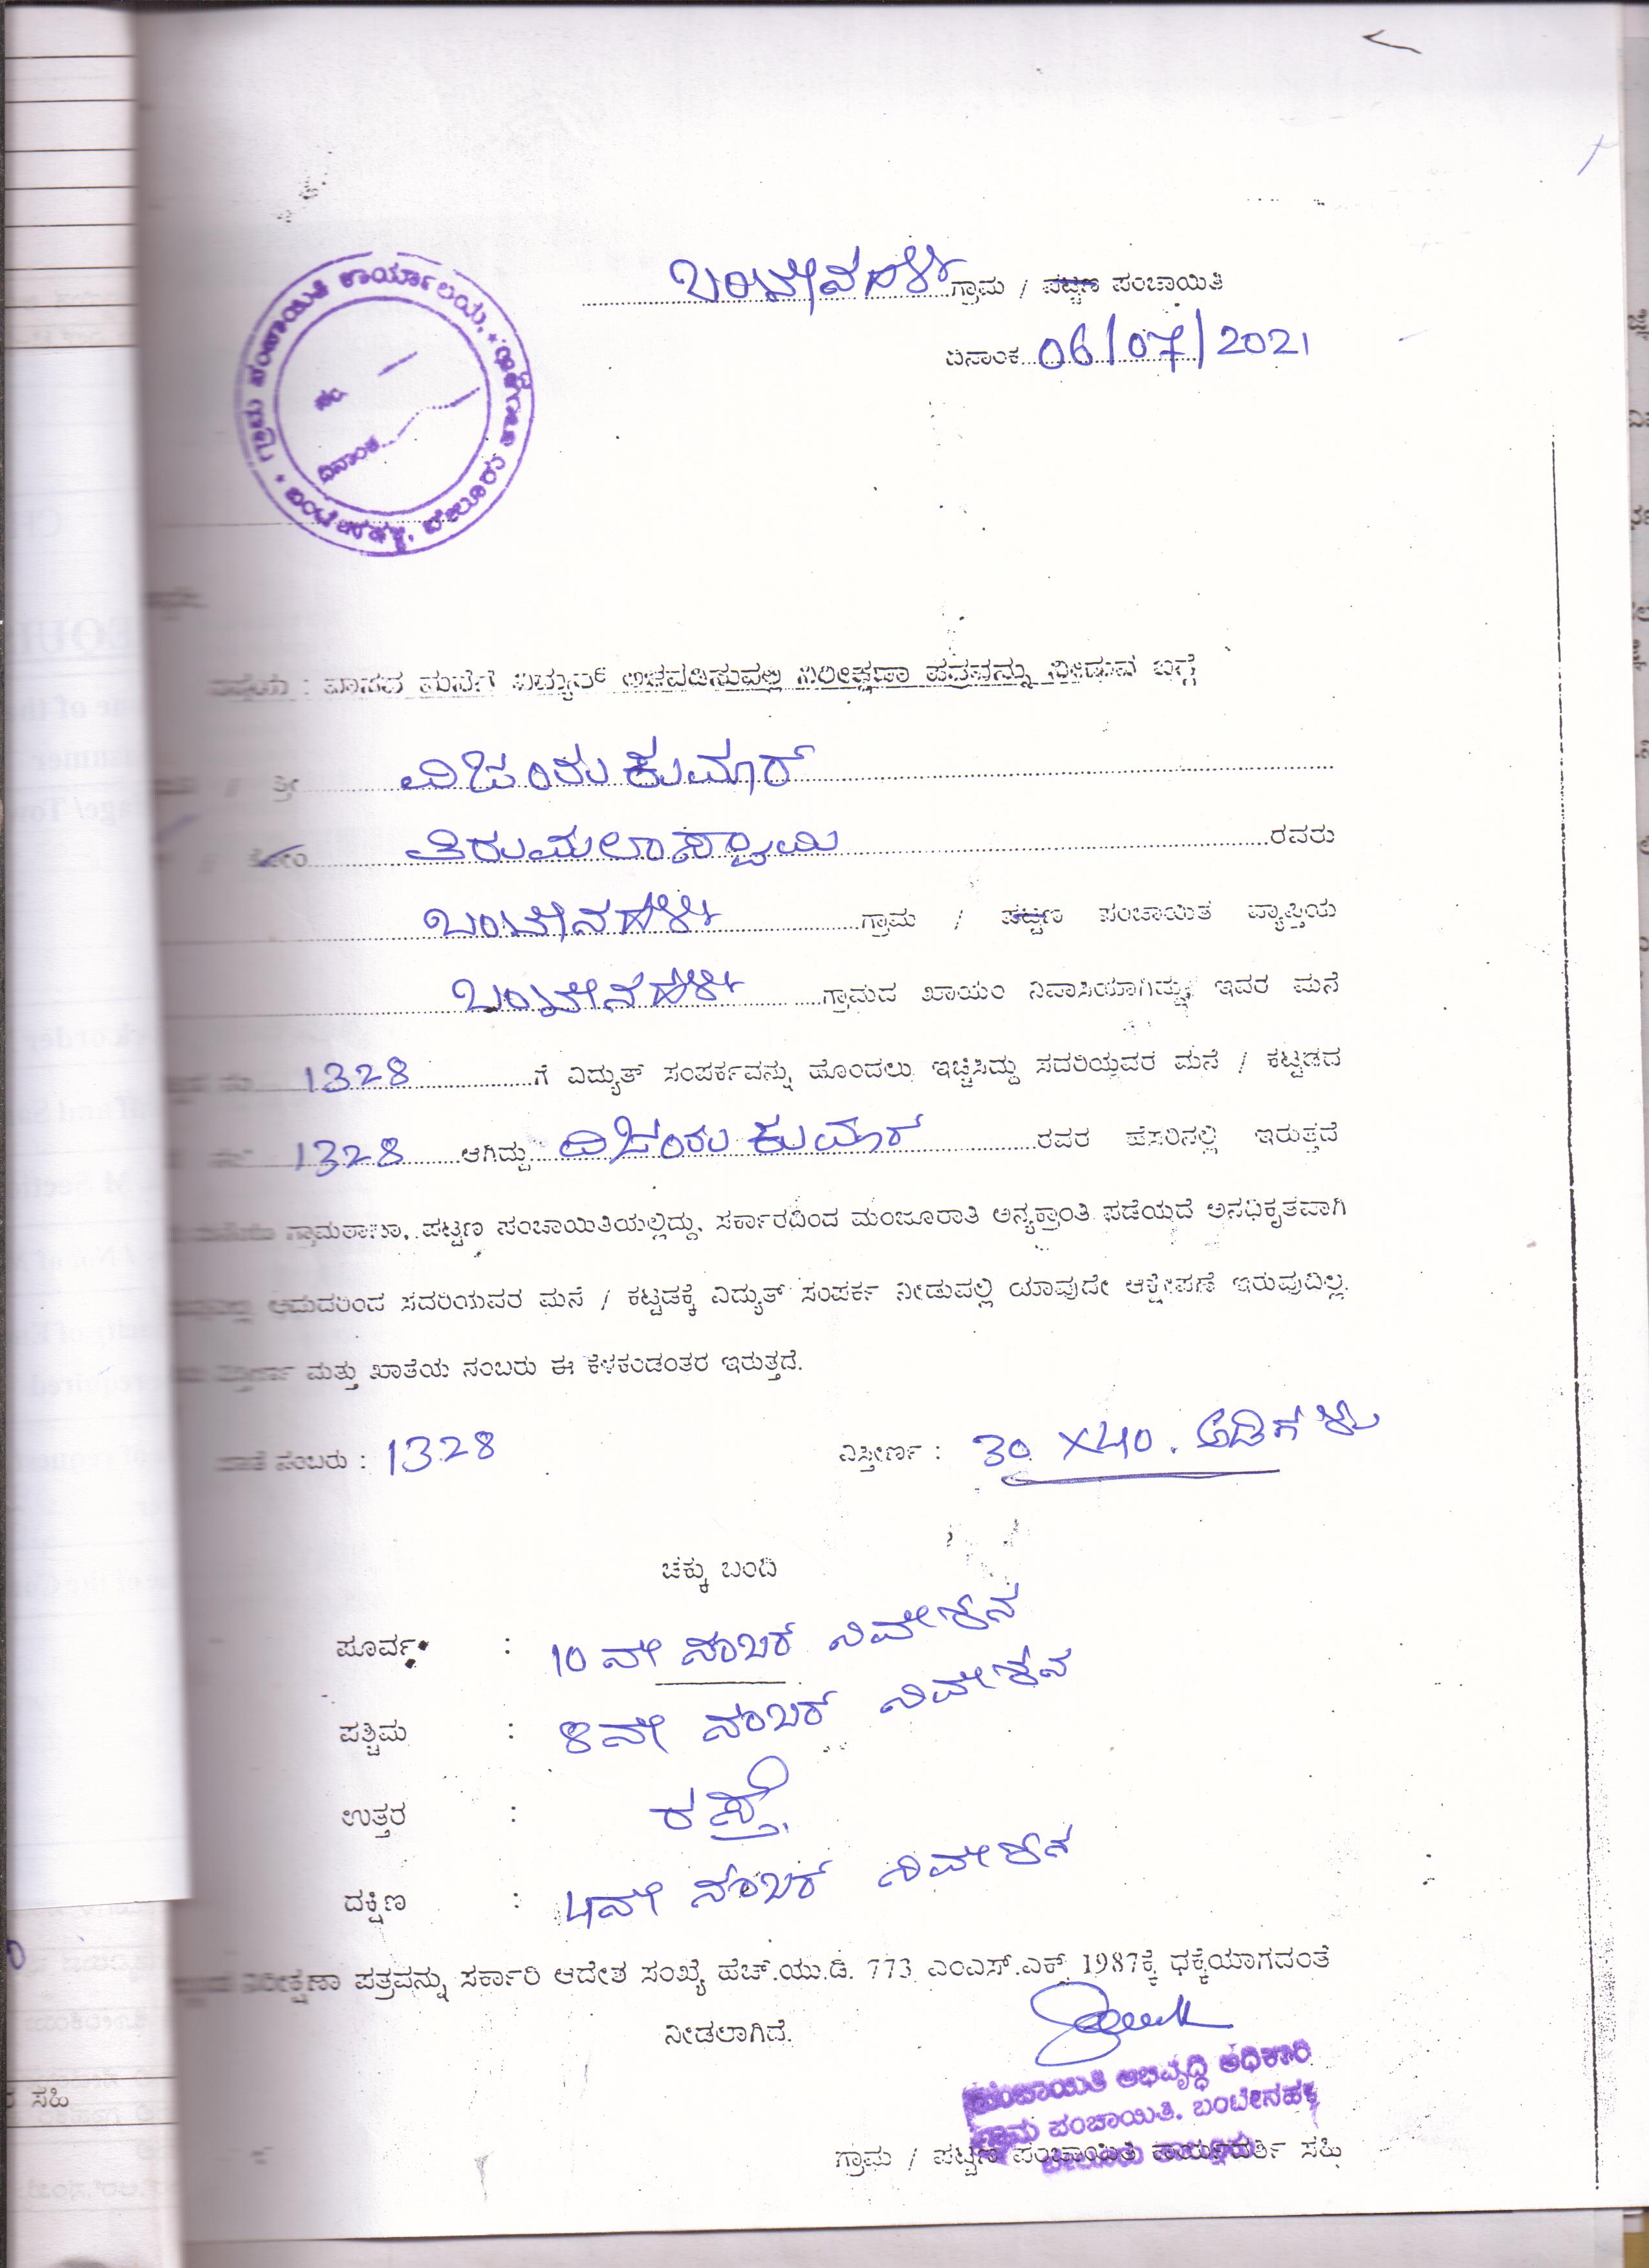 ಬಂಟೇನಹಳ್ಳಿ ಗ್ರಾಮ / ಪಟ್ಟಣ ಪಂಚಾಯಿತಿ
ದಿನಾಂಕ 06/07/2021
ಗ್ರಾಮ ಪಂಚಾಯಿತಿ ಕಾರ್ಯಾಲಯ,
ಬಂಟೇನಹಳ್ಳಿ, ಬೇಲೂರು
ನಂ.
ದಿನಾಂಕ
ವಿಷಯ : ವಾಸದ ಮನೆಗೆ ವಿದ್ಯುತ್ ಅಳವಡಿಸುವಲ್ಲಿ ನಿರೀಕ್ಷಣಾ ಪತ್ರವನ್ನು ನೀಡುವ ಬಗ್ಗೆ
/ ಶ್ರೀ ವಿಜಯಕುಮಾರ್
/ ಕೋಂ ತಿರುಮಲಾಸ್ವಾಮಿ ರವರು
ಬಂಟೇನಹಳ್ಳಿ ಗ್ರಾಮ / ಪಟ್ಟಣ ಪಂಚಾಯಿತಿ ವ್ಯಾಪ್ತಿಯ
ಬಂಟೇನಹಳ್ಳಿ ಗ್ರಾಮದ ಖಾಯಂ ನಿವಾಸಿಯಾಗಿದ್ದು, ಇವರ ಮನೆ
ನಂ 1328 ಗೆ ವಿದ್ಯುತ್ ಸಂಪರ್ಕವನ್ನು ಹೊಂದಲು ಇಚ್ಚಿಸಿದ್ದು ಸದರಿಯವರ ಮನೆ / ಕಟ್ಟಡದ
1328 ಆಗಿದ್ದು ವಿಜಯಕುಮಾರ್ ರವರ ಹೆಸರಿನಲ್ಲಿ ಇರುತ್ತದೆ
ಗ್ರಾಮಠಾಣಾ, ಪಟ್ಟಣ ಪಂಚಾಯಿತಿಯಲ್ಲಿದ್ದು, ಸರ್ಕಾರದಿಂದ ಮಂಜೂರಾತಿ ಅನ್ಯಕ್ರಾಂತಿ ಪಡೆಯದೆ ಅನಧಿಕೃತವಾಗಿ
ಆದುದರಿಂದ ಸದರಿಯವರ ಮನೆ / ಕಟ್ಟಡಕ್ಕೆ ವಿದ್ಯುತ್ ಸಂಪರ್ಕ ನೀಡುವಲ್ಲಿ ಯಾವುದೇ ಆಕ್ಷೇಪಣೆ ಇರುವುದಿಲ್ಲ.
ವಿಸ್ತೀರ್ಣ ಮತ್ತು ಖಾತೆಯ ನಂಬರು ಈ ಕೆಳಕಂಡಂತರ ಇರುತ್ತದೆ.
ಖಾತೆ ನಂಬರು : 1328 ವಿಸ್ತೀರ್ಣ : 30 X40. ಅಡಿಗಳು
ಚಕ್ಕು ಬಂದಿ
ಪೂರ್ವ : 10 ನೇ ನಂಬರ್ ನಿವೇಶನ
ಪಶ್ಚಿಮ : 8ನೇ ನಂಬರ್ ನಿವೇಶನ
ಉತ್ತರ : ರಸ್ತೆ,
ದಕ್ಷಿಣ : 4ನೇ ನಂಬರ್ ನಿವೇಶನ
ನಿರೀಕ್ಷಣಾ ಪತ್ರವನ್ನು ಸರ್ಕಾರಿ ಆದೇಶ ಸಂಖ್ಯೆ ಹೆಚ್.ಯು.ಡಿ. 773 ಎಂಎಸ್.ಎಕ್ 1987ಕ್ಕೆ ಧಕ್ಕೆಯಾಗದಂತೆ
ನೀಡಲಾಗಿದೆ.
ಪಂಚಾಯಿತಿ ಅಭಿವೃದ್ಧಿ ಅಧಿಕಾರಿ
ಗ್ರಾಮ ಪಂಚಾಯಿತಿ. ಬಂಟೇನಹಳ್ಳಿ
ಗ್ರಾಮ / ಪಟ್ಟಣ ಪಂಚಾಯಿತಿ ಕಾರ್ಯದರ್ಶಿ ಸಹಿ
ಸಹಿ